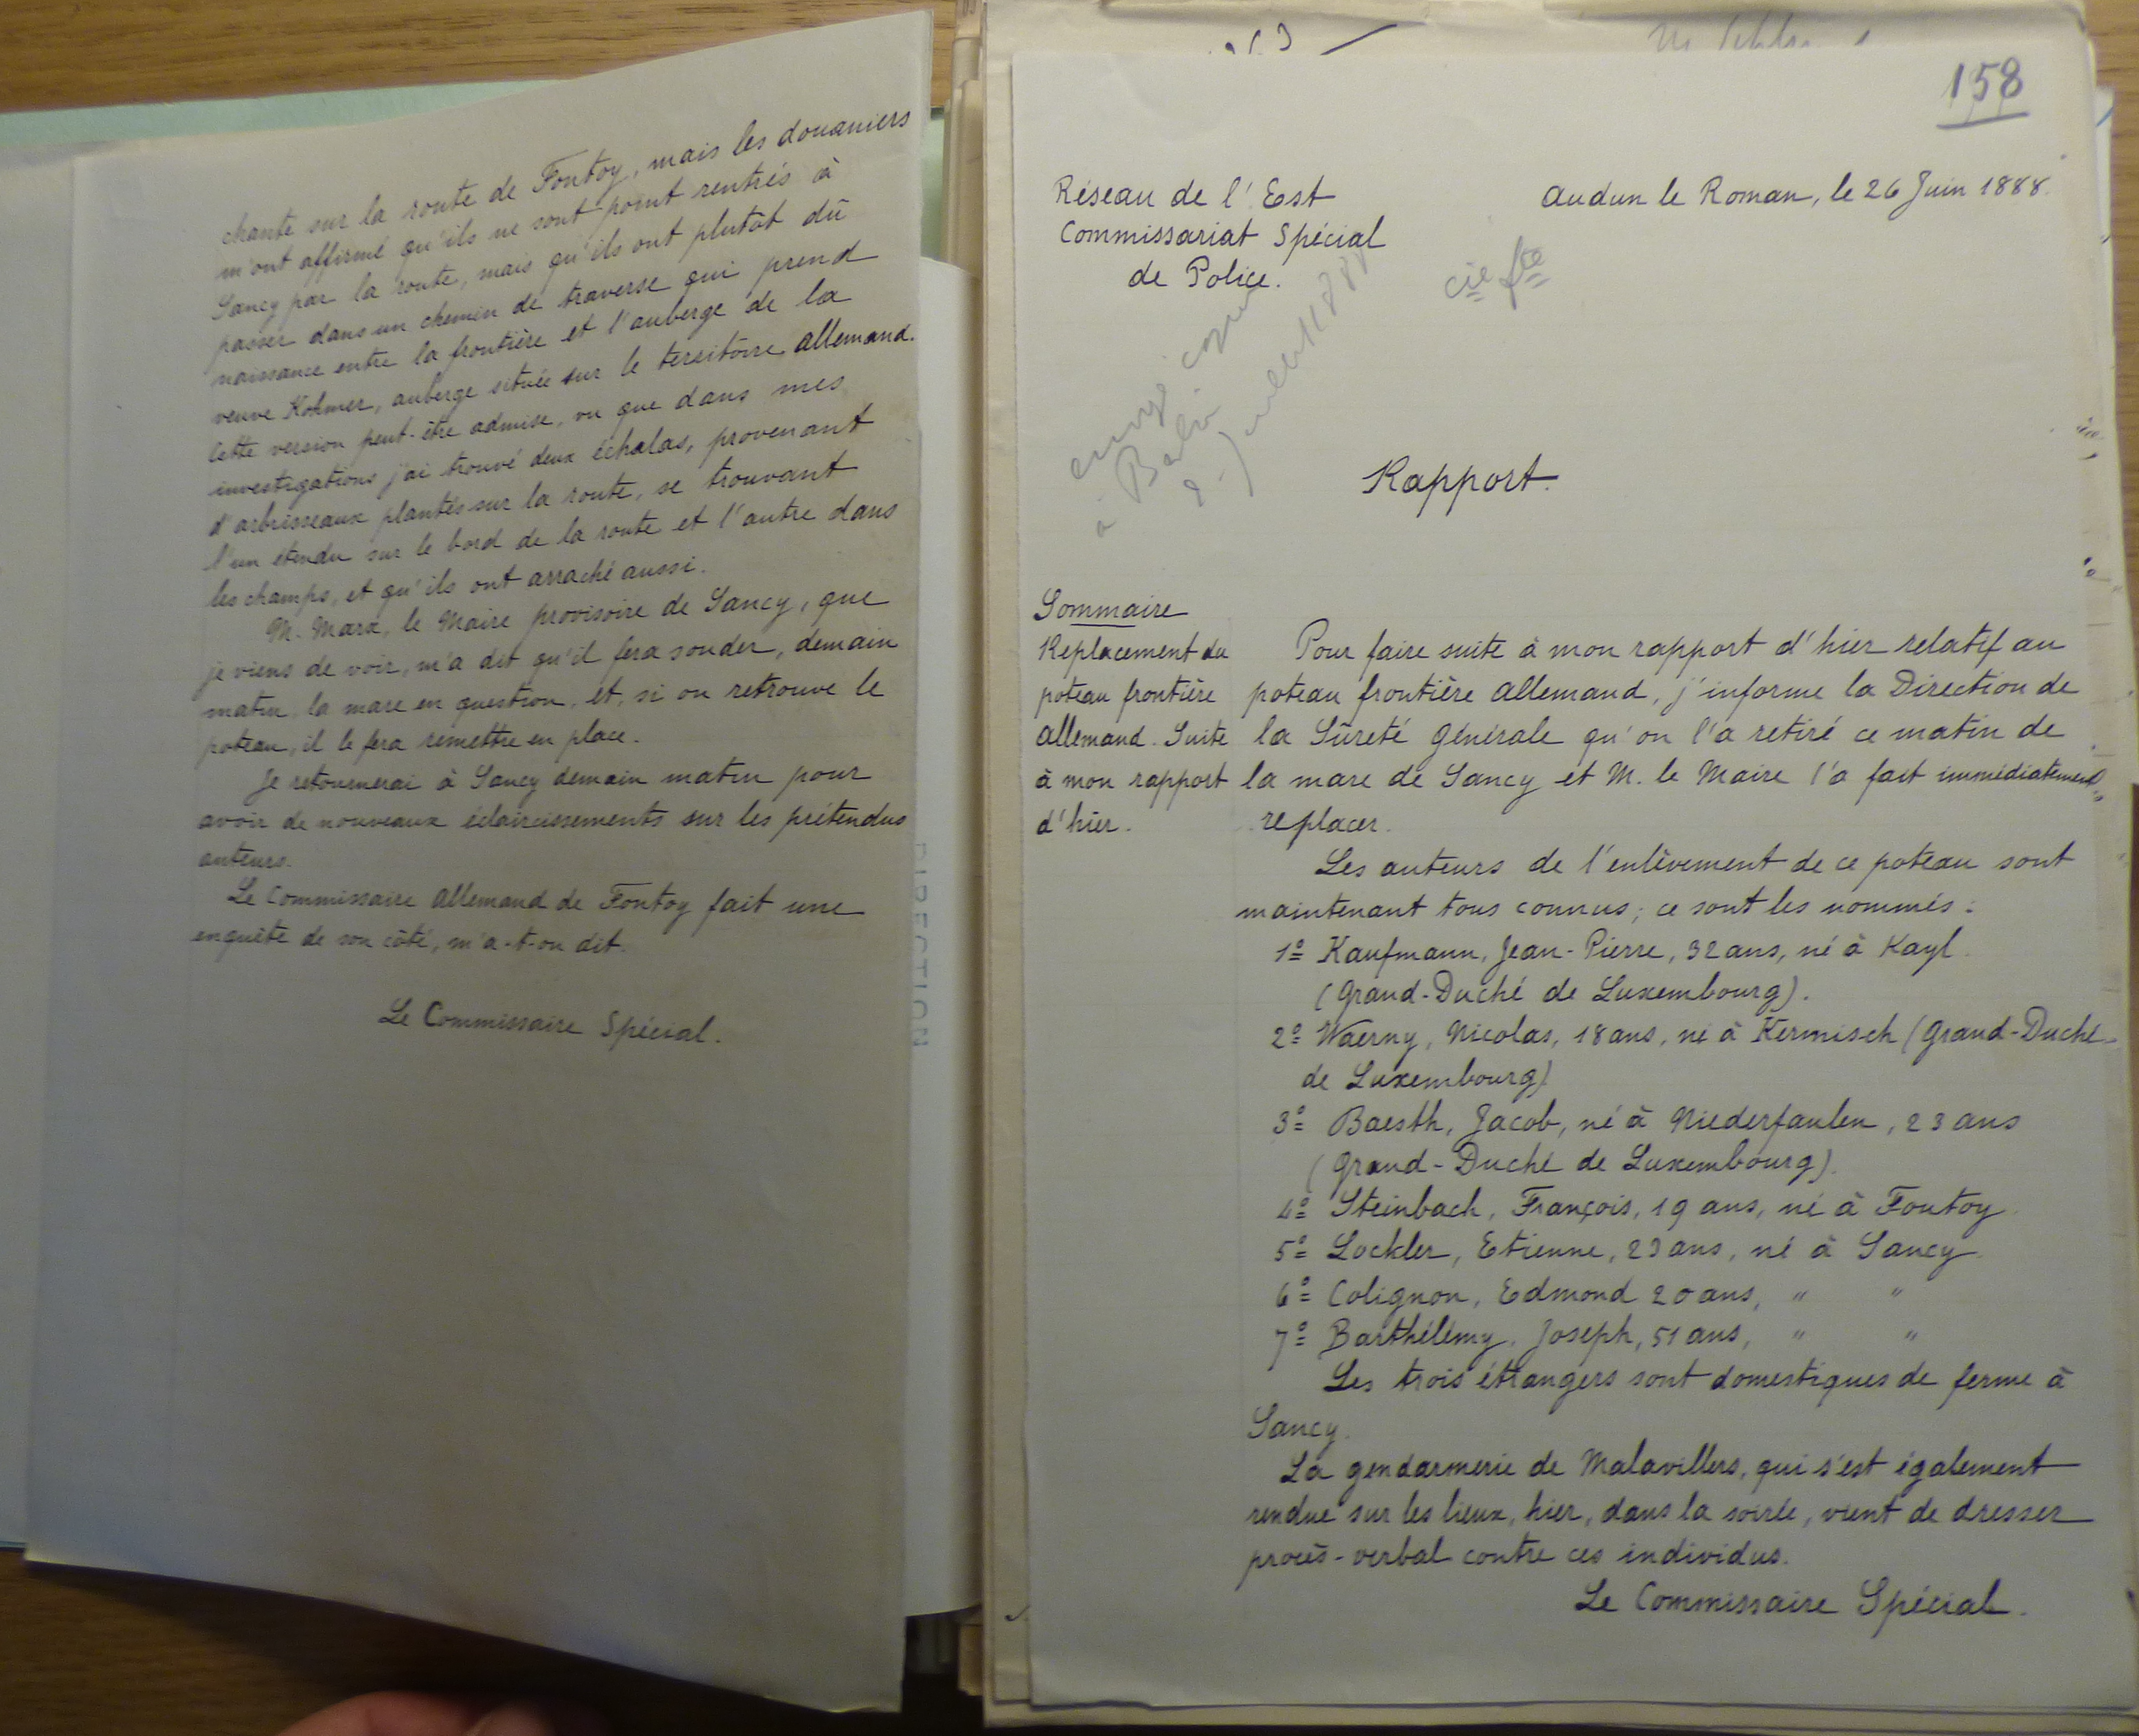 chante sur la route de Fontoy, mais les douaniers
m'ont affirmé qu'ils ne sont point rentrés à
Sancy par la route, mais qu'ils ont plutôt dû
passer dans un chemin de traverse qui prend
naissance entre la frontière et l'auberge de la
veuve Kohmer, auberge située sur le territoire allemand.
Cette version peut-être admise, vu que dans mes
investigations j'ai trouvé deux échalas, provenant
d'arbrisseaux plantés sur la route, se trouvant
l'un étendu sur le bord de la route et l'autre dans
les champs, et qu'ils ont arraché aussi.
M. Marx, le Maire provisoire de Sancy, que
je viens de voir, m'a dit qu'il fera sonder, demain
matin, la mare en question, et, si on retrouve le
poteau, il le fera remettre en place.
Je retournerai à Sancy demain matin pour
avoir de nouveaux éclaircissements sur les prétendus
auteurs.
Le Commissaire allemand de Fontoy fait une
enquête de son côté, m'a-t-on dit.
Le Commissaire Spécial.
DIRECTION
158
Réseau de l'Est
Commissariat Spécial
de Police.
Audun le Roman, le 26 Juin 1888.
envoyé copie
à
2 Juillet 1888
Rapport.
Sommaire
Replacement du
poteau frontière
allemand. Suite
à mon rapport
d'hier.
Pour faire suite à mon rapport d'hier relatif au
poteau frontière allemand, j'informe la Direction de
la Sûreté Générale qu'on l'a retiré ce matin de
la mare de Sancy et M. le Maire l'a fait immédiatement
replacer.
Les auteurs de l'enlèvement de ce poteau sont
maintenant tous connus; ce sont les nommés:
1º Kaufmann, Jean-Pierre, 32 ans, né à Kayl
(Grand-Duché de Luxembourg).
2º Waerny, Nicolas, 18 ans, né à Kermisch (Grand-Duché
de Luxembourg)
3º Baesth, Jacob, né à Niederfaulen, 23 ans
(Grand-Duché de Luxembourg).
4º Steinbach, François, 19 ans, né à Fontoy
5º Lockler, Etienne, 23 ans, né à Sancy
6º Colignon, Edmond 20 ans, " "
7º Barthélémy, Joseph, 51 ans, " "
Les trois étrangers sont domestiques de ferme à
Sancy.
La gendarmerie de Malavillers, qui s'est également
rendue sur les lieux, hier, dans la soirée, vient de dresser
procès-verbal contre ces individus.
Le Commissaire Spécial.